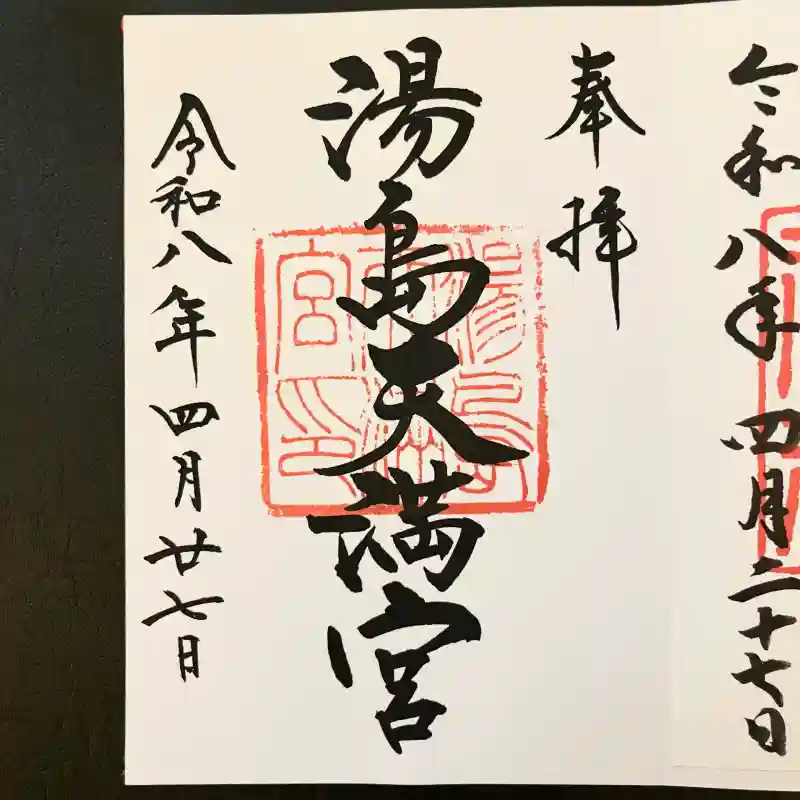 令和八年四月二十七日
奉拝
湯島天満宮
湯島天満宮印
令和八年四月廿七日